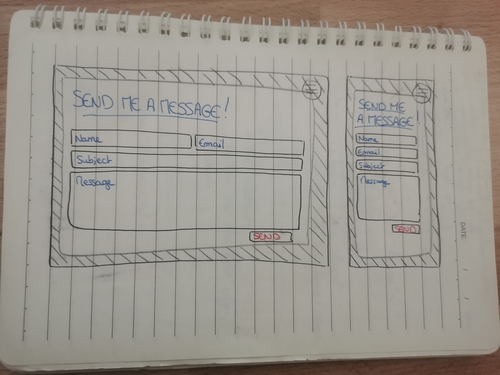 SEND ME A MESSAGE!
Name
Email
Subject
Message
SEND
SEND ME
A MESSAGE!
Name
Email
Subject
Message
SEND
DATE